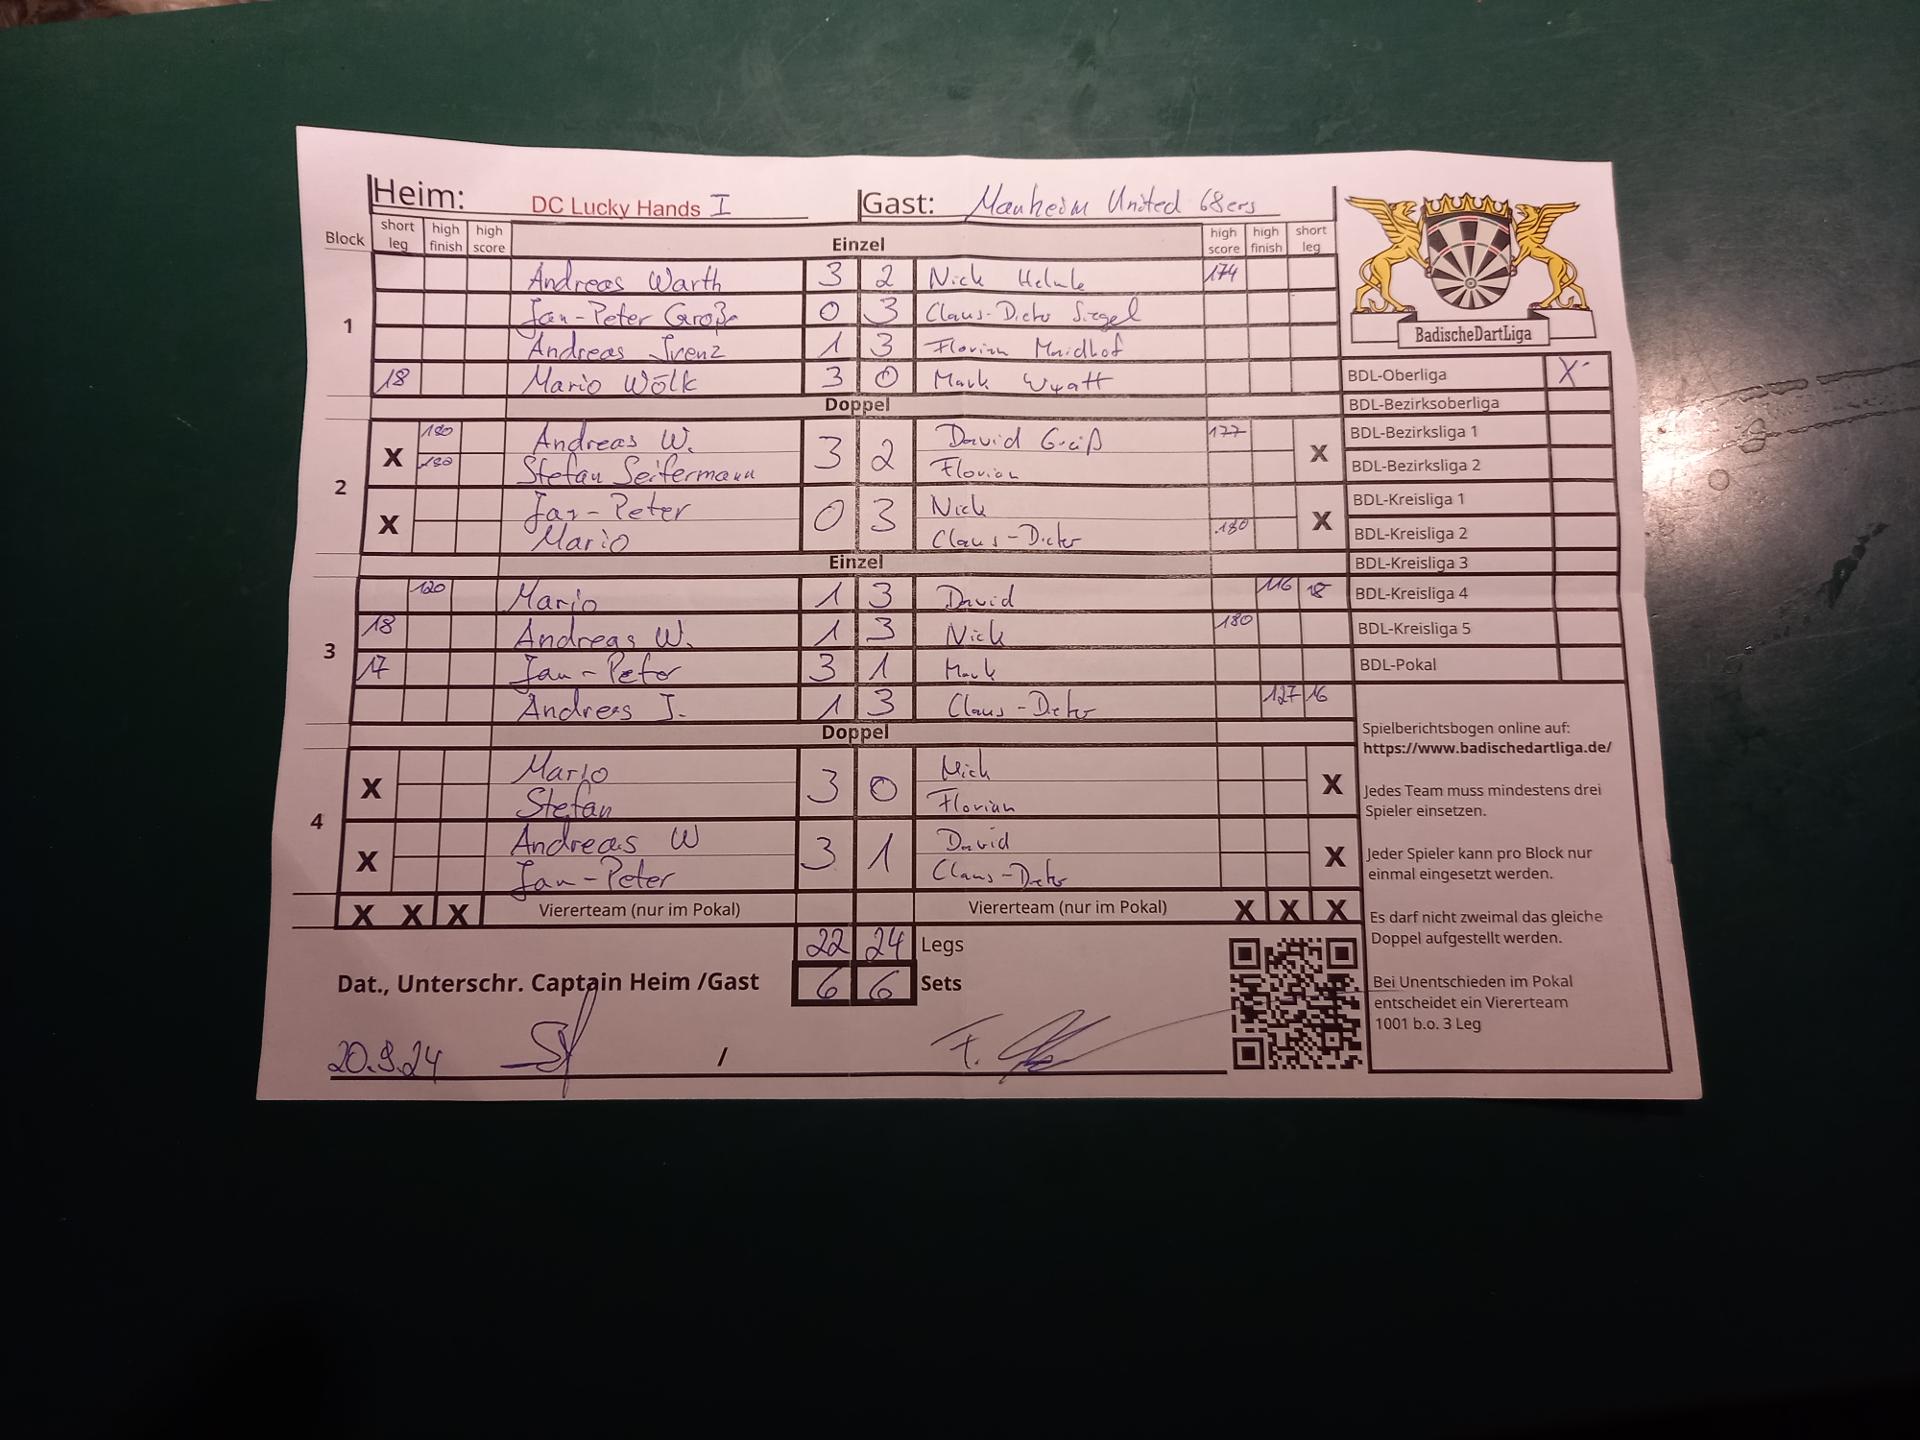 Heim: DC Lucky Hands I Gast: Manheim United 68ers
Block short leg high finish high score Einzel high score high finish short leg
1
Andreas Warth 3 2 Nick Helmle 174
Jan-Peter Große 0 3 Claus-Dieter Siegel
Andreas Irenz 1 3 Florian Maidhof
18 Mario Wölk 3 0 Mark Wyatt
Doppel
2
X 180 Andreas W. 3 2 David Greiß 177 X
180 Stefan Seifermann Florian
X Jan-Peter 0 3 Nick X
Mario Claus-Dieter 180
Einzel
3
120 Mario 1 3 David 116 18
18 Andreas W. 1 3 Nick 180
17 Jan-Peter 3 1 Mark
Andreas I. 1 3 Claus-Dieter 127 16
Doppel
4
X Mario 3 0 Nick X
Stefan Florian
X Andreas W 3 1 David X
Jan-Peter Claus-Dieter
X X X Viererteam (nur im Pokal) Viererteam (nur im Pokal) X X X
22 24 Legs
Dat., Unterschr. Captain Heim /Gast 6 6 Sets
20.9.24 / F.
BadischeDartLiga
BDL-Oberliga X
BDL-Bezirksoberliga
BDL-Bezirksliga 1
BDL-Bezirksliga 2
BDL-Kreisliga 1
BDL-Kreisliga 2
BDL-Kreisliga 3
BDL-Kreisliga 4
BDL-Kreisliga 5
BDL-Pokal
Spielberichtsbogen online auf:
https://www.badischedartliga.de/
Jedes Team muss mindestens drei
Spieler einsetzen.
Jeder Spieler kann pro Block nur
einmal eingesetzt werden.
Es darf nicht zweimal das gleiche
Doppel aufgestellt werden.
Bei Unentschieden im Pokal
entscheidet ein Viererteam
1001 b.o. 3 Leg